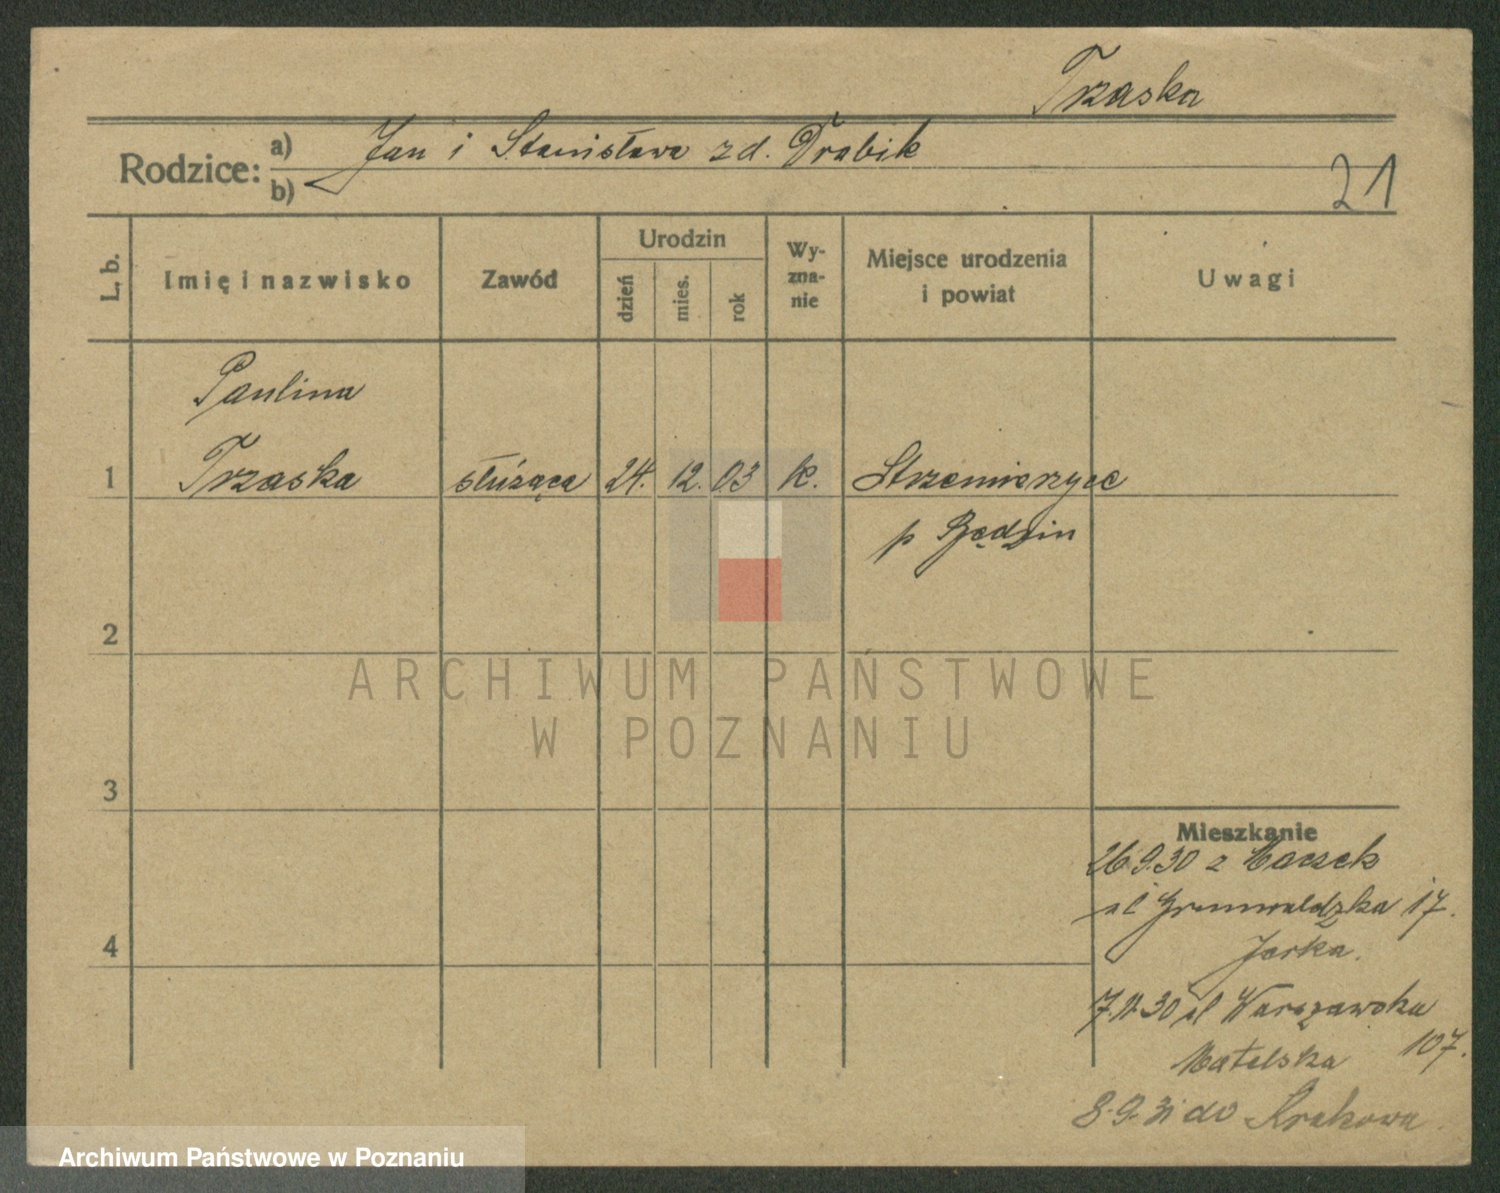 Trzaska
Rodzice: a) Jan i Stanisława zd. Drabik
b)
21
L. b.
Imię i nazwisko
Zawód
Urodzin
dzień
mies.
rok
Wy-
zna-
nie
Miejsce urodzenia
i powiat
Uwagi
Paulina
1 Trzaska służąca 24. 12. 03 k. Strzemieszyce
p Będzin
2
ARCHIWUM PAŃSTWOWE
W POZNANIU
3
Mieszkanie
26.9.30 z
ul Grunwaldzka 17.
4
30 ul Warszawska
107.
8.9.31 do Krakowa.
Archiwum Państwowe w Poznaniu